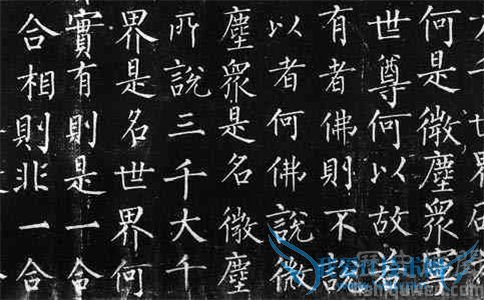 千世界
何是微塵眾寧
世尊何以故
有者佛則不說
以者何佛說微
塵眾是名微塵
所說三千大千
界是名世界何
實有則是一合
合相則非一合